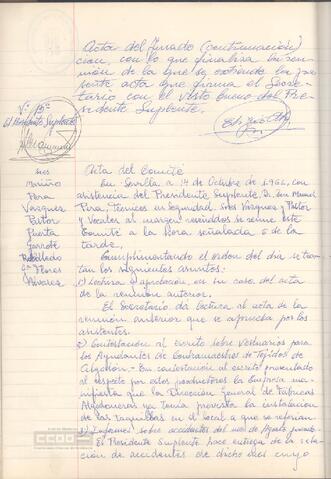 Acta del Jurado (continuación)
cion, con lo que finaliza la reu-
nión de la que se extiende la pre-
sente acta que firma el Secre-
tario con el visto bueno del Pre-
sidente Suplente.
Vº Bº
El Presidente Suplente
El Secretº
Acta del Comité
sres
Mariño
Pera
Vazquez
Pastor
Huerta
Garrote
Rebolledo
Gª Flores
Alvarez
En Sevilla a 14 de Octubre de 1.966, con
asistencia del Presidente Suplente, D. Manuel
Pera, Técnicos en Seguridad, Sres Vázquez y Pastor
y Vocales al margen reseñados se reune este
Comité a la hora señalada 6 de la
tarde.
Cumplimentando el orden del dia se tra-
tan los siguientes asuntos:
1) Lectura y aprobación, en su caso del acta
de la reunión anterior.
El Secretario da lectura al acta de la
reunión anterior que se aprueba por los
asistentes.
2) Contestación al escrito sobre Vestuarios para
los Ayudantes de Contramaestres de Tejidos de
Algodón.- En contestación al escrito presentado
al respecto por estos productores la Empresa ma-
nifiesta que la Dirección General de Fabricas
Algodoneras ya tenia prevista la instalación
de las taquillas en el local a que se referian.
3) Informes sobre accidentes del mes de Agosto pasado.-
El Presidente Suplente hace entrega de la rela-
ción de accidentes de dicho mes cuyo
CCOO